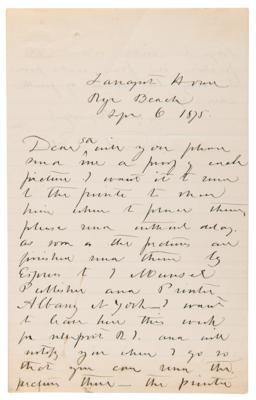 House
Rye Beach
6 1875
Dear sir will you please
send me a proof of each
picture I want it to send
to the printer to show
him where to place them,
please send without delay.
as soon as the pictures are
finished send them by
Express to J Munsel
Publisher and Printer
Albany N York — I want
to leave here this week
for Newport R.I. and will
notify you where I go so
that you can send the
pictures there — the printer